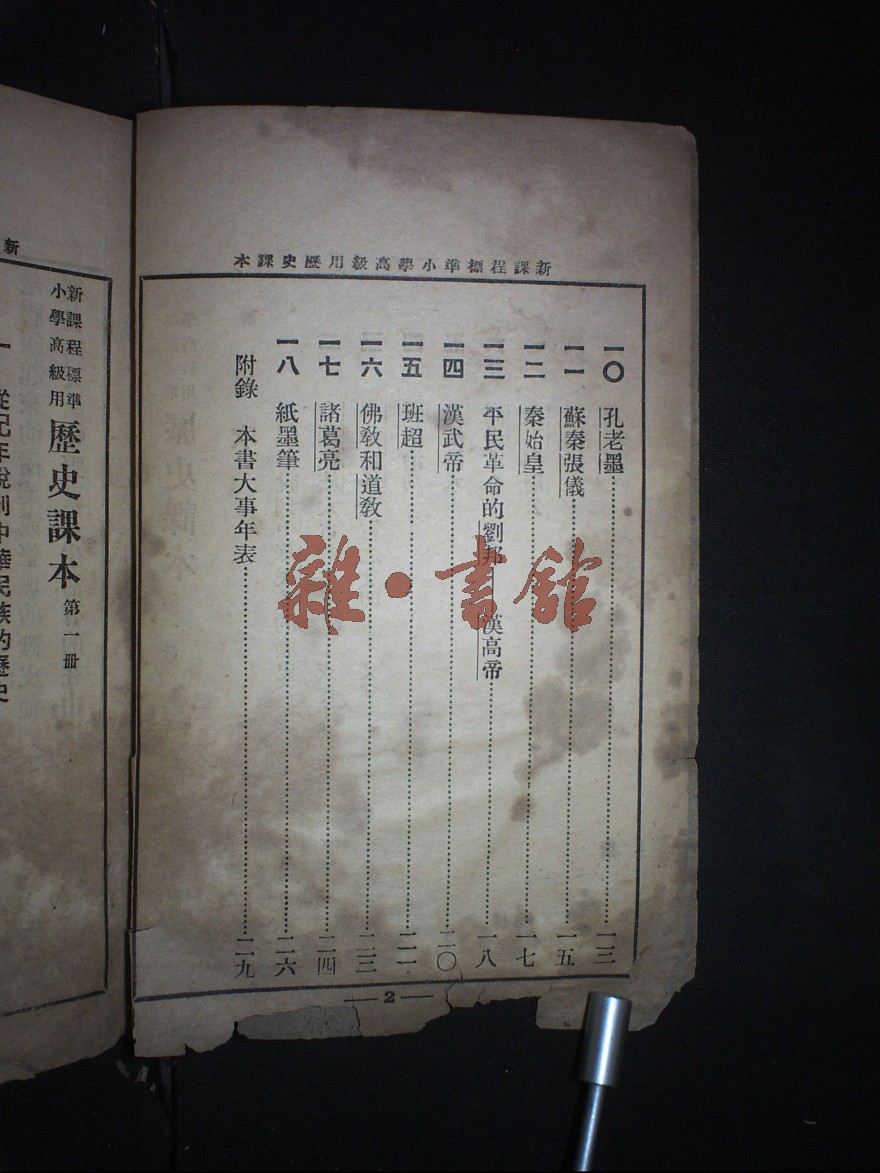 新課程標準小學高級用歷史課本
一〇 孔老墨……一三
一一 蘇秦張儀……一五
一二 秦始皇……一七
一三 平民革命的劉邦——漢高帝……一八
一四 漢武帝……二〇
一五 班超……二一
一六 佛敎和道敎……二三
一七 諸葛亮……二四
一八 紙墨筆……二六
附錄 本書大事年表……二九
— 2 —
雜·書館
新
新課程標準
小學高級用
歷史課本 第一冊
一 從紀年說到中華民族的歷史